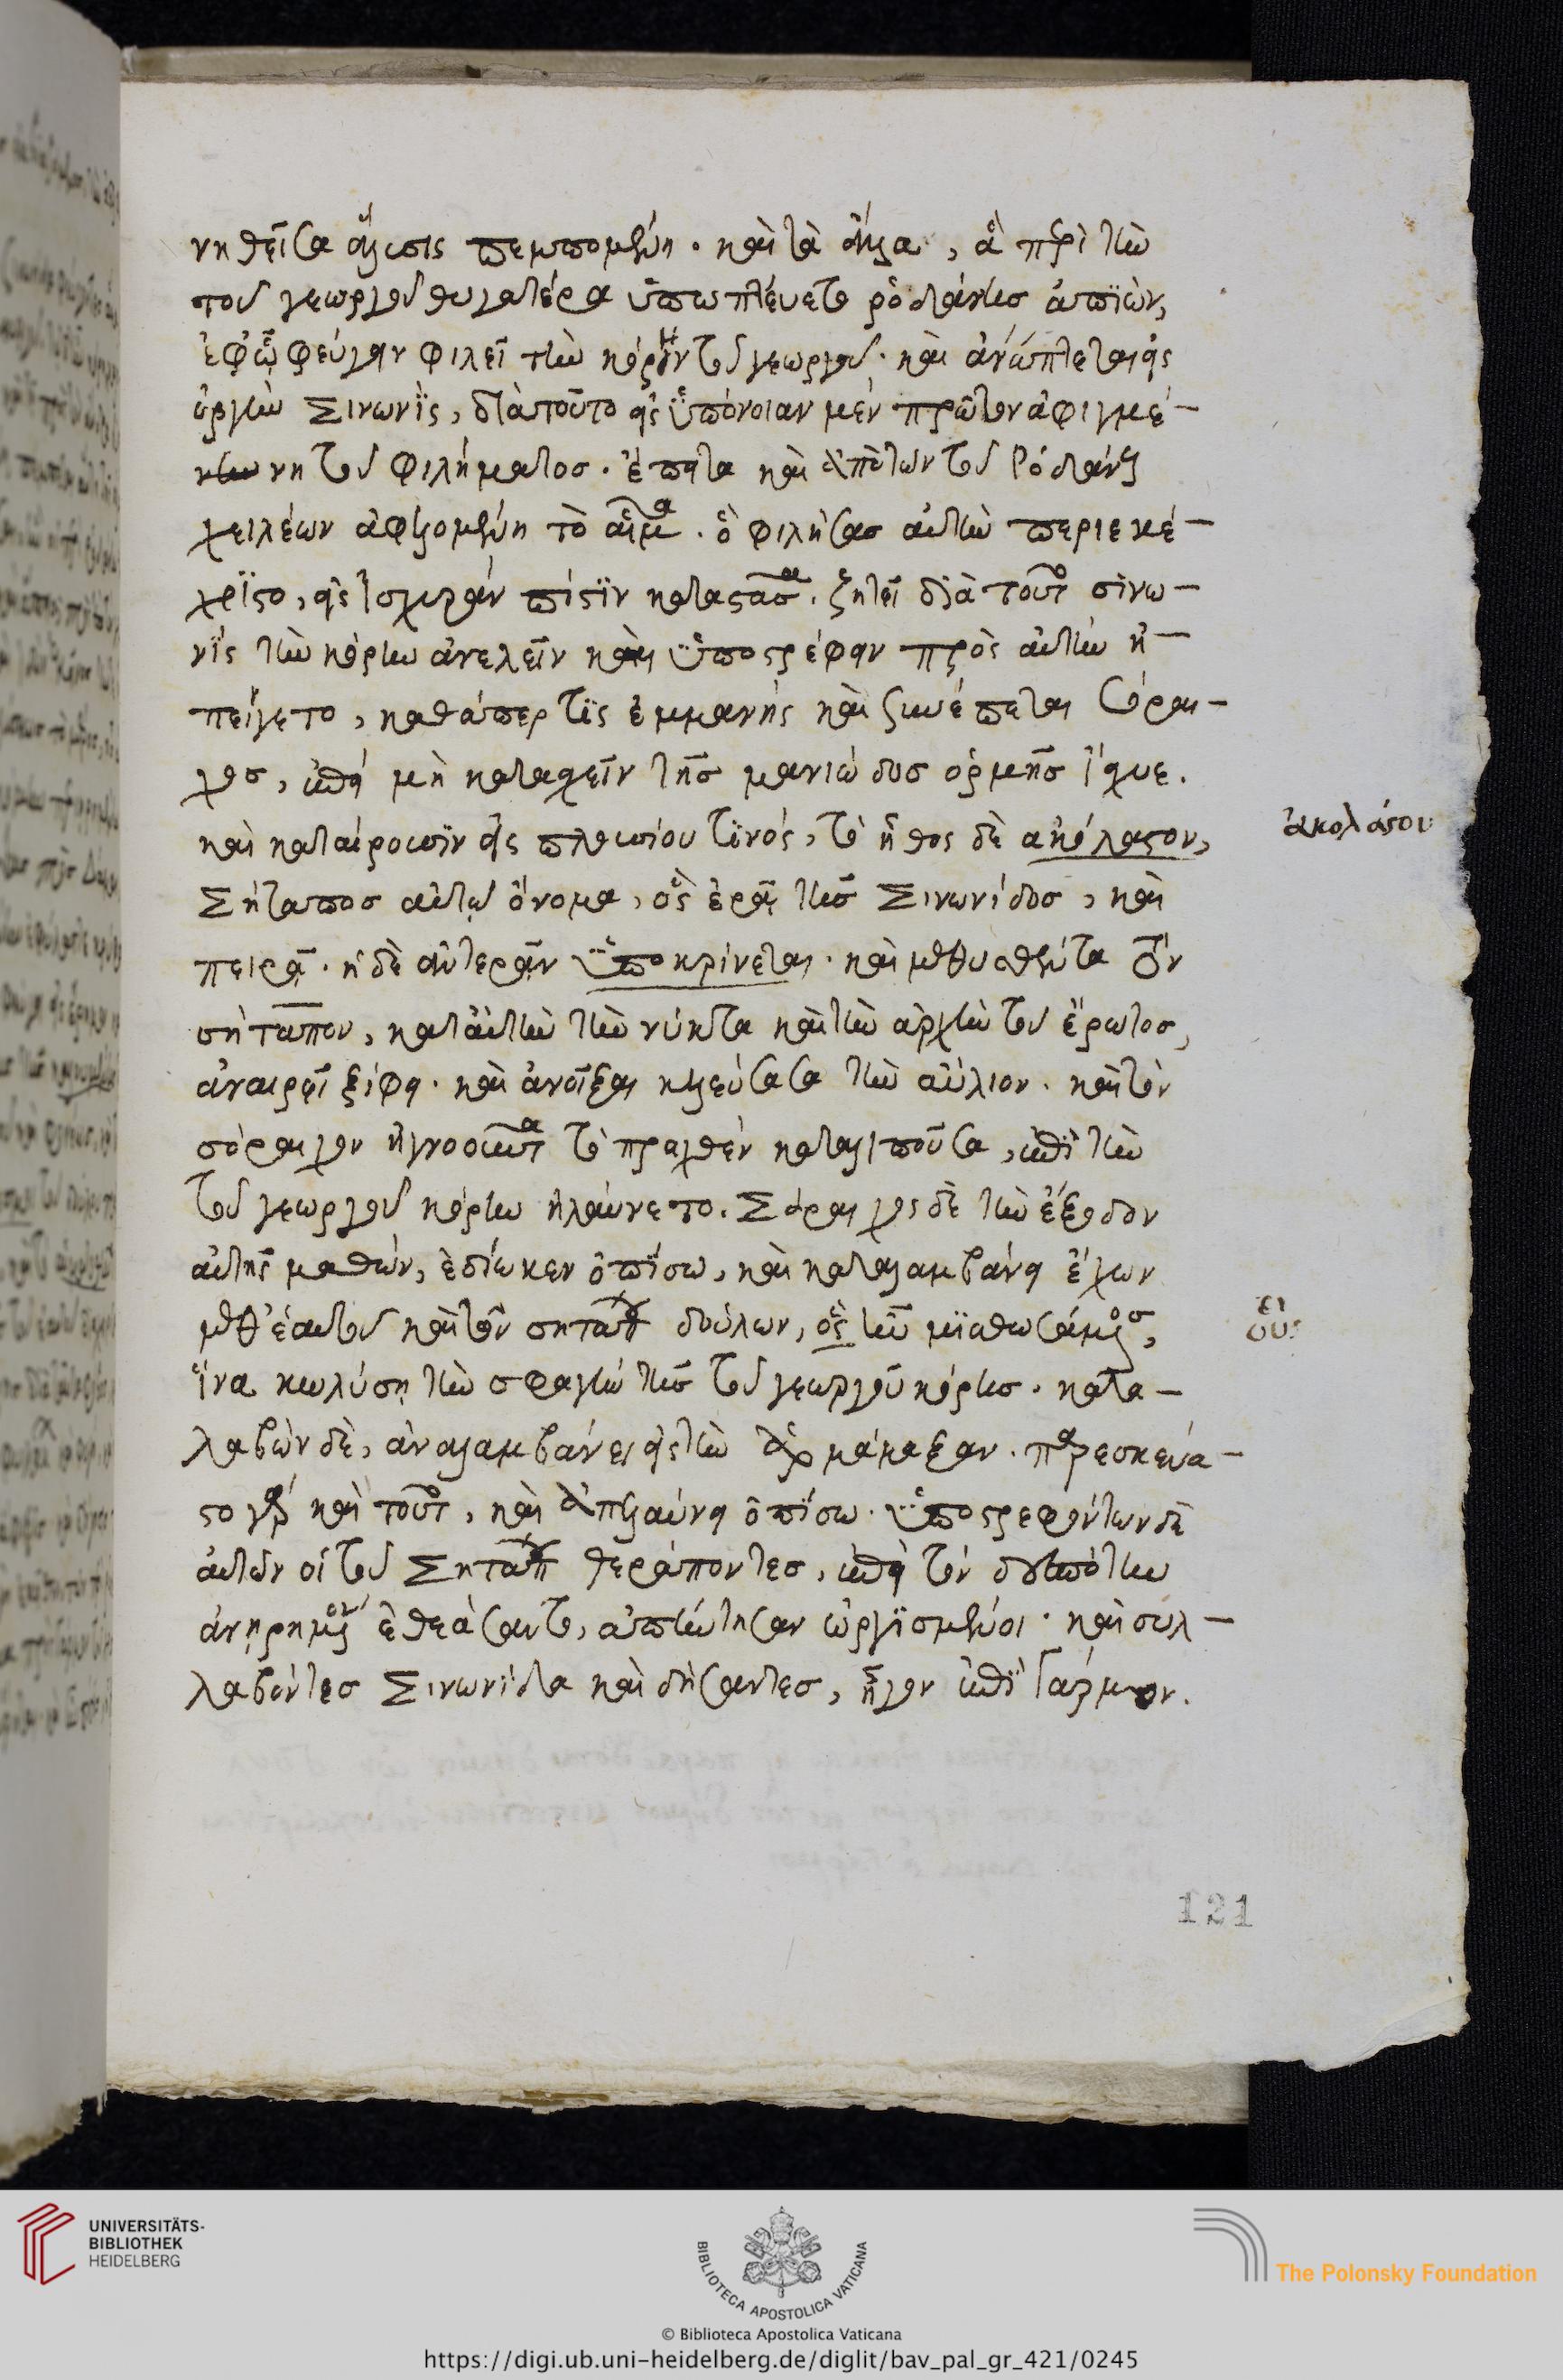 νηθεῖσα ἅλυσις πεμπομένη· καὶ τὰ ἄλλα, ἃ περὶ τὴν
τοῦ γεωργοῦ θυγατέρα ὑπωπτεύετο ῥοδάνης ἀπϊὼν,
ἐφ' ᾧ φεύγειν φιλεῖ τὴν κόρην τοῦ γεωργοῦ· καὶ ἀνάπτεται εἰς
ὀργὴν Σινωνῒς, διὰ τοῦτο εἰς ὑπόνοιαν μὲν πρῶτον ἀφιγμέ-
νη τοῦ φιλήματος· ἔπειτα καὶ ἀπὸ τῶν τοῦ Ῥοδάνους
χειλέων ἀφελομένη τὸ αἷμα· ὃ φιλήσας αὐτὴν περιεκέ-
χρϊστο, εἰς ἰσχυρὰν πίστϊν καταστᾶσα· ζητεῖ διὰ τοῦτο σινω-
νῒς τὴν κόρην ἀνελεῖν καὶ ὑποστρέφειν πρὸς αὐτὴν ἠ-
πείγετο, καθάπερ τῒς ἐμμανής καὶ συνέπεται Σόραι-
χος, ἐπεὶ μὴ κατασχεῖν τῆς μανιώδους ὁρμῆς ἴσχυε.
καὶ καταίρουσϊν εἰς πλουσίου τϊνός, τὸ ἦθος δὲ ἀκόλαστον,
ἀκολάστου
Σήταπος αὐτῷ ὄνομα, ὃς ἐρᾷ τῆς Σινωνίδος, καὶ
πειρᾷ· ἡ δὲ ἀντερᾶν ὑποκρίνεται· καὶ μεθυσθέντα τὸν
σήταπον, κατ' αὐτὴν τὴν νύκτα καὶ τὴν ἀρχὴν τοῦ ἔρωτος,
ἀναιρεῖ ξίφει· καὶ ἀνοῖξαι κελεύσασα τὴν αὔλιον· καὶ τὸν
σόραιχον ἠγνοοῦντα τὸ πραχθὲν καταλιποῦσα, ἐπὶ τὴν
τοῦ γεωργοῦ κόρην ἠλαύνετο. Σόραιχος δὲ τὴν ἔξοδον
αὐτῆς μαθών, ἐδίωκεν ὀπίσω, καὶ καταλαμβάνει ἔχων
μεθ' ἑαυτοῦ καὶ τῶν σητάπου δούλων, οὓς ἦν μϊσθωσάμενος,
ει
ους
ἵνα κωλύσῃ τὴν σφαγὴν τῆς τοῦ γεωργοῦ κόρης· κατα-
λαβὼν δὲ, ἀναλαμβάνει εἰς τὴν ἁρμάμαξαν· παρεσκεύα-
στο γὰρ καὶ τοῦτο, καὶ ἀπελαύνει ὀπίσω· ὑποστρεφόντων δὲ
αὐτῶν οἱ τοῦ Σητάπου θεράποντες, ἐπεὶ τὸν δεσπότην
ἀνῃρημένον ἐθεάσαντο, ἀπήντησαν ὠργϊσμένοι· καὶ συλ-
λαβόντες Σινωνίδα καὶ δήσαντες, ἦγον ἐπὶ Γάρμον.
121
UNIVERSITÄTS-
BIBLIOTHEK
HEIDELBERG
BIBLIOTECA APOSTOLICA VATICANA
The Polonsky Foundation
© Biblioteca Apostolica Vaticana
https://digi.ub.uni-heidelberg.de/diglit/bav_pal_gr_421/0245